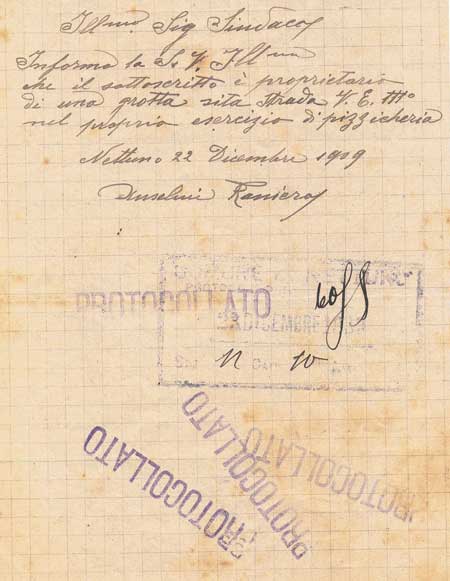 Ill.mo Sig Sindaco
Informo la S. V. Ill.ma
che il sottoscritto è proprietario
di una grotta sita strada V. E. III°
nel proprio esercizio di pizzicheria
Nettuno 22 Dicembre 1929
Anselmi Raniero
COMUNE
PROTOCOLLATO
DICEMBRE
PROTOCOLLATO
PROTOCOLLATO
PROTOCOLLATO